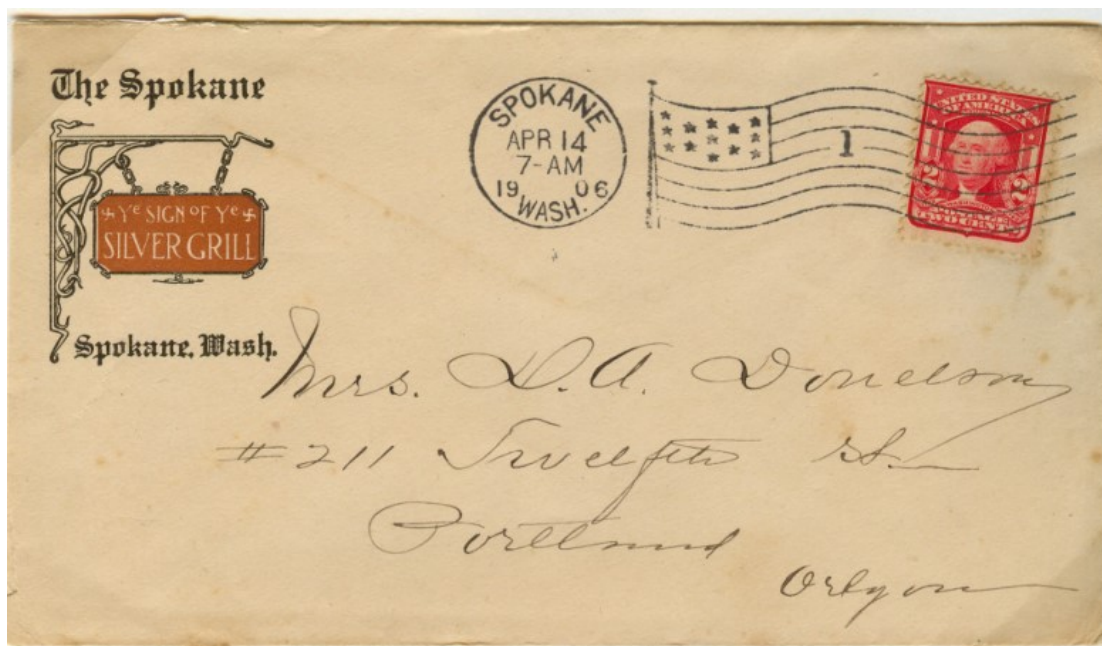 The Spokane
Ye SIGN OF Ye
SILVER GRILL
Spokane, Wash.
SPOKANE
APR 14
7-AM
1906
WASH.
1
UNITED STATES
OF AMERICA
2 2
TWO CENTS
Mrs. D. A. Donelson
#211 Twelfth St.
Portland
Oregon